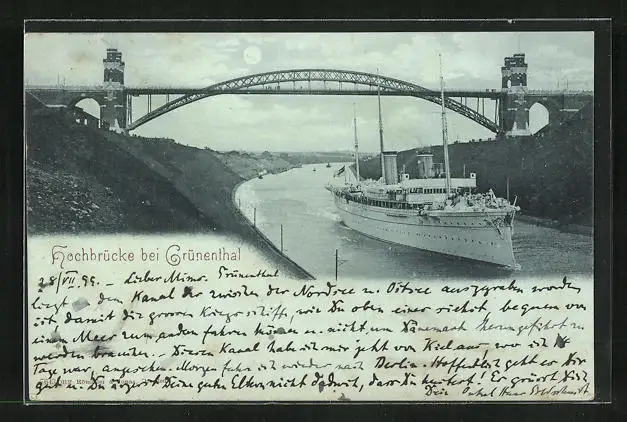 Hochbrücke bei Grünenthal
28/VII 99. – Lieber Mimo. Grünenthal
liegt an dem Kanal der zwischen der Nordsee u. Ostsee ausgegraben worden
ist damit die grossen Kriegsschiffe, wie Du oben eine siehst, bequem von
einem Meer zum andern fahren können u. nicht um Dänemark herumgeführt zu
werden brauchen. – Diesen Kanal habe ich mir jetzt von Kiel aus, wo ich
Tage war, angesehen. Morgen fahre ich wieder nach Berlin. Hoffentlich geht es Dir
gut u. Du ärgerst Deine guten Eltern nicht damit, dass Du hustest! Es grüsst Dich
Dein Onkel Hans